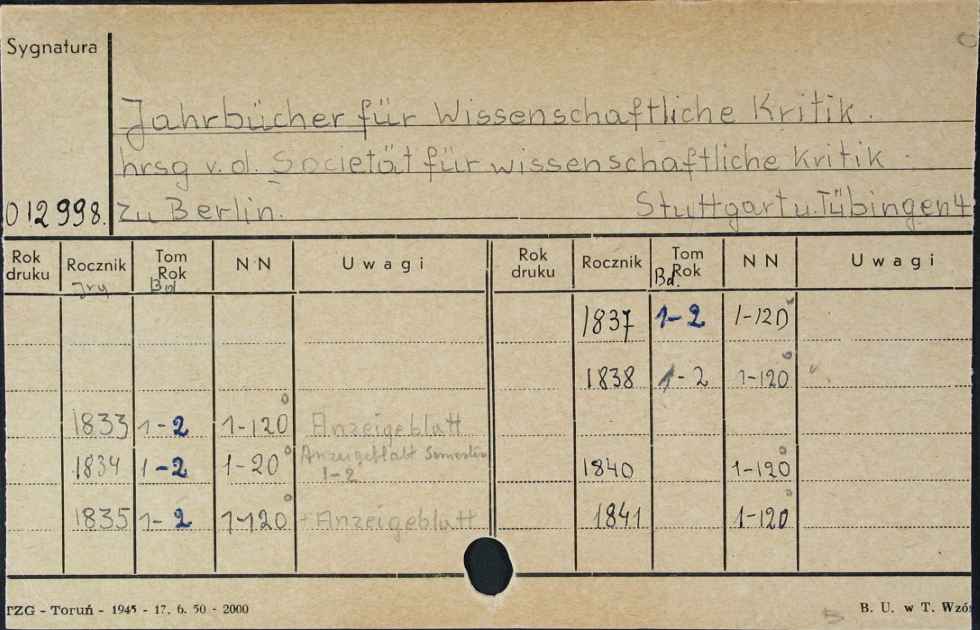 Sygnatura
Jahrbücher für Wissenschaftliche Kritik.
hrsg v. d. Societät für wissenschaftliche Kritik.
012998. zu Berlin. Stuttgart u. Tübingen 4
Rok druku Rocznik Tom Rok NN Uwagi Rok druku Rocznik Tom Rok NN Uwagi
Bd. Bd.
1837 1-2 1-120
1838 1-2 1-120
1833 1-2 1-120 Anzeigeblatt
1834 1-2 1-20 Anzeigeblatt Semester 1-2 1840 1-120
1835 1-2 1-120 + Anzeigeblatt 1841 1-120
TZG - Toruń - 1945 - 17. 6. 50 - 2000 B. U. w T. Wzór